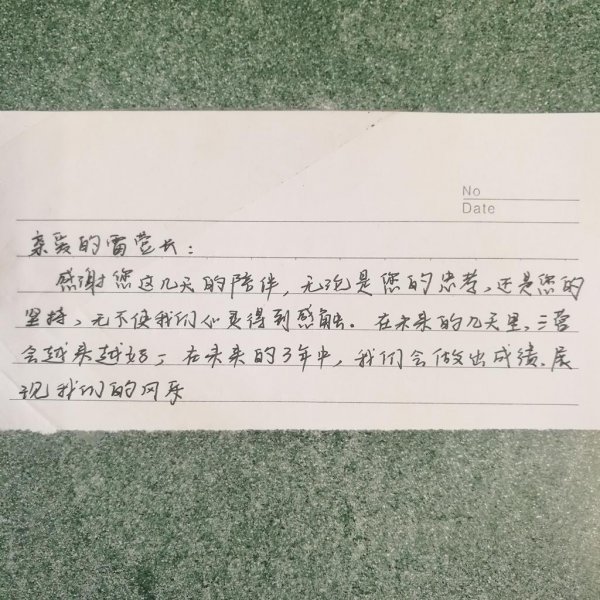 No
Date
亲爱的雷营长：
感谢您这几天的陪伴，无论是您的思考、还是您的
坚持，无不使我们心灵得到感触。在未来的几天里，三营
会越来越好；在未来的3年中，我们会做出成绩、展
现我们的风采